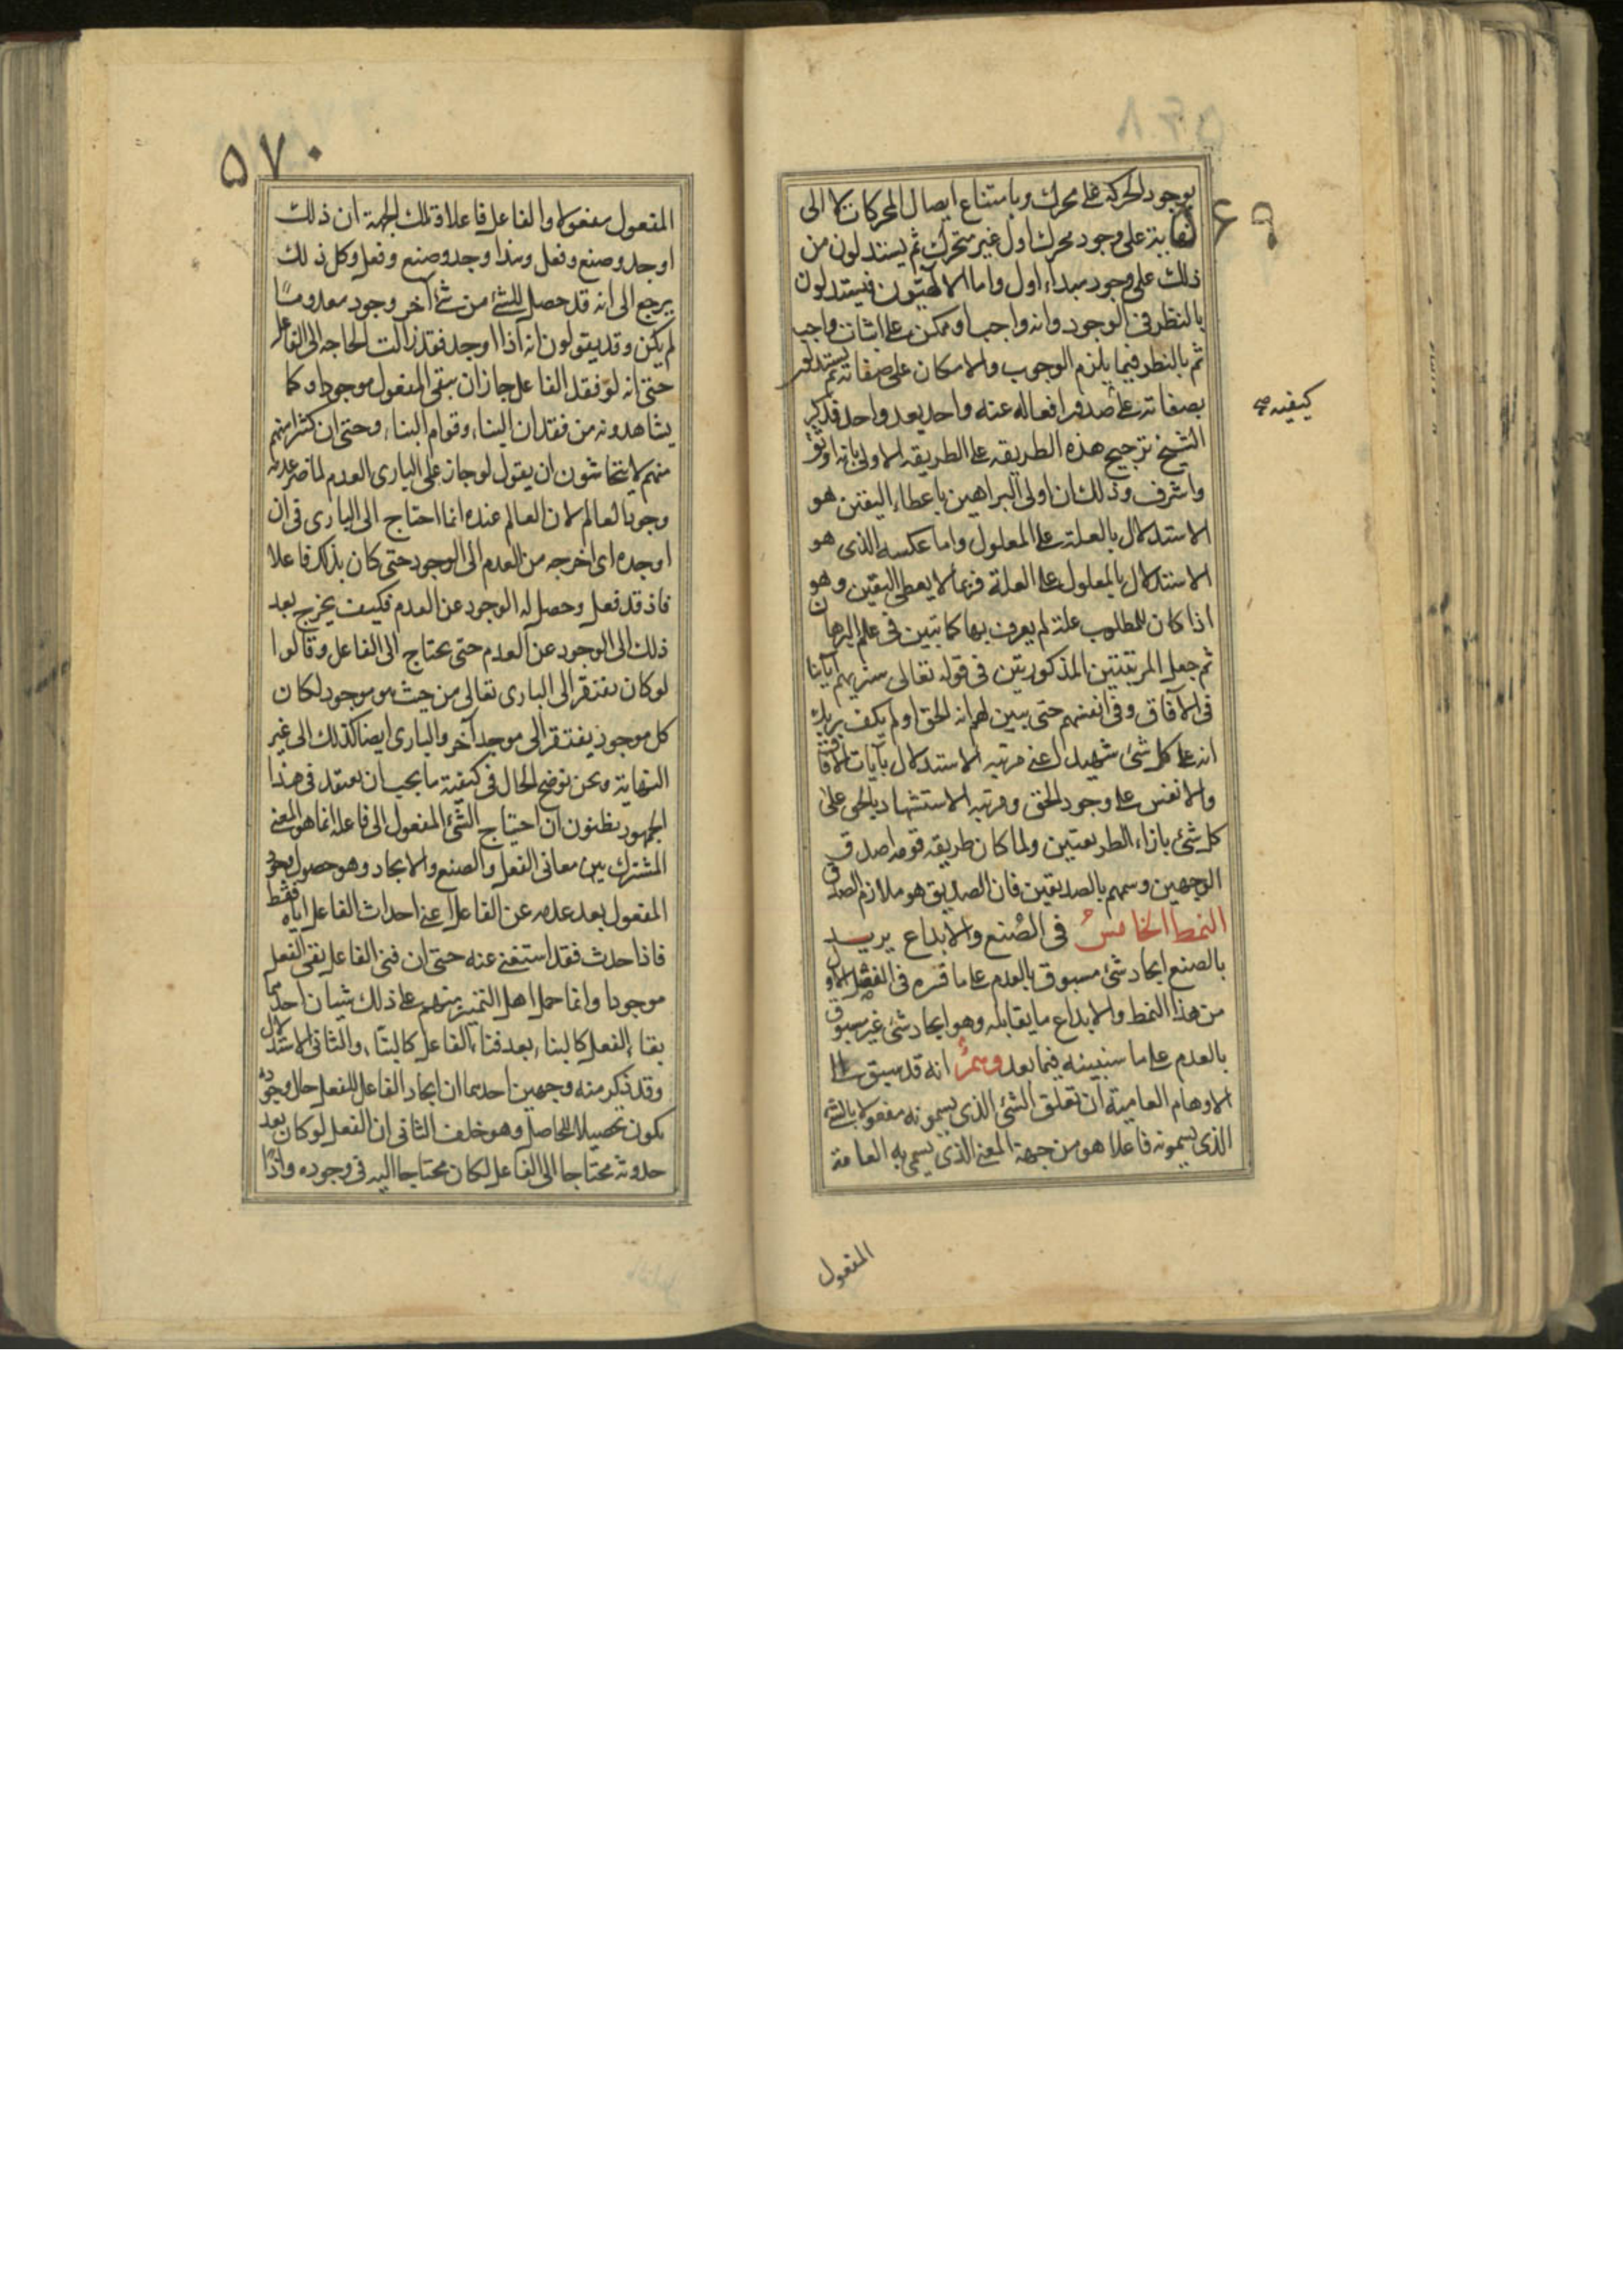 بوجود الحركة على محرك وبامتناع ايصال المحركات لا الى
نهاية على وجود محرك اول غير متحرك ثم يستدلون من
ذلك على وجود مبداء اول واما الالهيون فيستدلون
بالنظر فى الوجود وانه واجب او ممكن على اثبات واجب
ثم بالنظر فيما يلزم الوجوب والامكان على صفاته ثم يستدلون
بصفاته على صدور افعاله عنه واحد بعد واحد فذكر
كيفية صح
الشيخ ترجيح هذه الطريقه على الطريقه الاولى بانه اوثق
واشرف وذلك ان اولى البراهين باعطاء اليقين هو
الاستدلال بالعلة على المعلول واما عكسه الذى هو
الاستدلال بالمعلول على العلة فربما لا يعطى اليقين وهو
اذا كان للمطلوب علة لم يعرف بها كما تبين فى علم البرهان
ثم جعل المرتبتين المذكورتين فى قوله تعالى سنريهم آياتنا
فى الآفاق وفى انفسهم حتى يتبين لهم انه الحق اولم يكف بربك
انه على كل شئ شهيد اعنى مرتبه الاستدلال بآيات الآفاق
والانفس على وجود الحق ومرتبه الاستشهاد بالحق على
كل شئ بازاء الطريقتين ولما كان طريقه قومه اصدق
الوجهين وسمهم بالصديقين فان الصديق هو ملازم الصدق
النمط الخامس فى الصنع والابداع يريد
بالصنع ايجاد شئ مسبوق بالعدم على ما فسره فى الفصل الاول
من هذا النمط والابداع ما يقابله وهو ايجاد شئ غير مسبوق
بالعدم على ما سنبينه فيما بعد وهم انه قد سبق الى
الاوهام العامية ان تعلق الشئ الذى يسمونه مفعولا بالشئ
الذى يسمونه فاعلا هو من جهة المعنى الذى يسمى به العامة
المفعول
۵۷۰
المفعول مفعولا والفاعل فاعلا وتلك الجهة ان ذلك
اوجد وصنع وفعل وهذا وجد وصنع وفعل وكل ذلك
يرجع الى انه قد حصل للشئ من شئ آخر وجود بعد ما
لم يكن وقد يقولون انه اذا اوجد فقد زالت الحاجه الى الفاعل
حتى انه لو فقد الفاعل جاز ان يبقى المفعول موجودا وكما
يشاهدونه من فقدان البناء وقوام البناء وحتى ان كثيرا منهم
منهم لا يتحاشون ان يقول لو جاز على البارى العدم لما ضر عدمه
وجود العالم لان العالم عنده انما احتاج الى البارى فى ان
اوجده اى اخرجه من العدم الى الوجود حتى كان بذلك فاعلا
فاذ قد فعل وحصل له الوجود عن العدم فكيف يخرج بعد
ذلك الى الوجود عن العدم حتى يحتاج الى الفاعل وقالوا
لو كان يفتقر الى البارى تعالى من حيث هو موجود لكان
كل موجود يفتقر الى موجد آخر والبارى ايضا كذلك الى غير
النهاية ونحن نوضح الحال فى كيفية ما يجب ان يعتقد فى هذا
الجمهور يظنون ان احتياج الشئ المفعول الى فاعله انما هو المعنى
المشترك بين معانى الفعل والصنع والايجاد وهو حصول وجود
المفعول بعد عدمه عن الفاعل اعنى احداث الفاعل اياه فقط
فاذا حدث فقد استغنى عنه حتى ان فنى الفاعل بقى الفعل
موجودا وانما حمل اهل التميز منهم على ذلك شيان احدهما
بقاء الفعل كالبناء بعد فناء الفاعل كالبنّاء والثانى الاستدلال
وقد ذكر منه وجهين احدهما ان ايجاد الفاعل للفعل حال وجوده
يكون تحصيلا للحاصل وهو خلف الثانى ان الفعل لو كان بعد
حدوثه محتاجا الى الفاعل لكان محتاجا اليه فى وجوده واذا